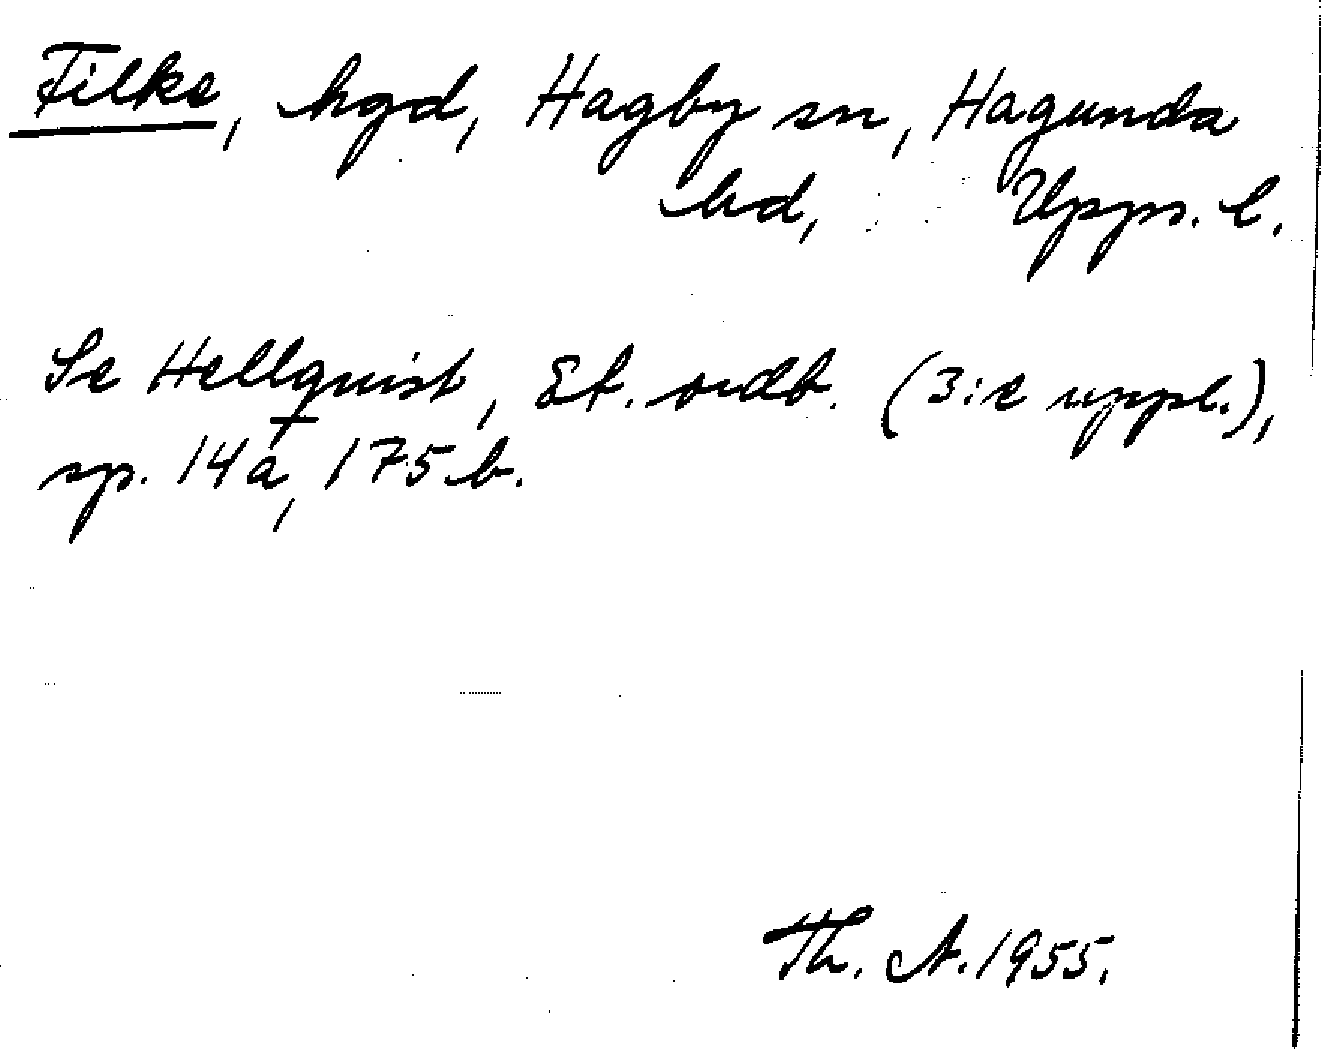 Filke, hgd, Hagby sn, Hagunda
hd, Upps. l.
Se Hellquist, Et. ordb. (3:e uppl.),
sp. 14 a, 175 b.
Th. A. 1955.